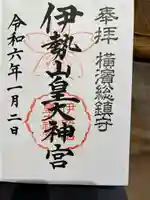 奉拝 横濱総鎮守
伊勢山皇大神宮
令和六年一月二日